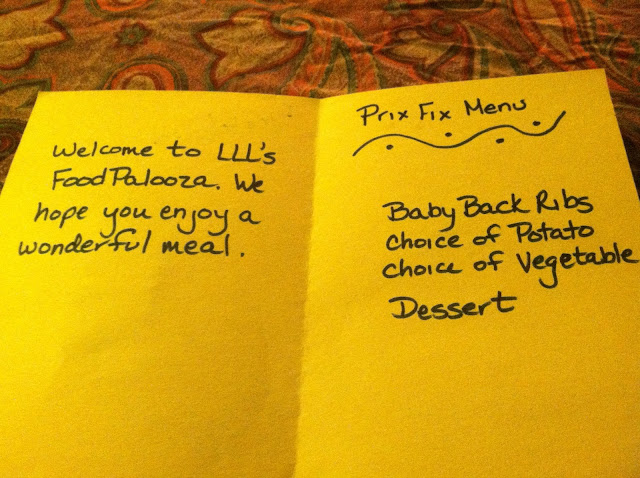 Welcome to LLL's
FoodPalooza. We
hope you enjoy a
wonderful meal.
Prix Fix Menu
Baby Back Ribs
choice of Potato
choice of Vegetable
Dessert